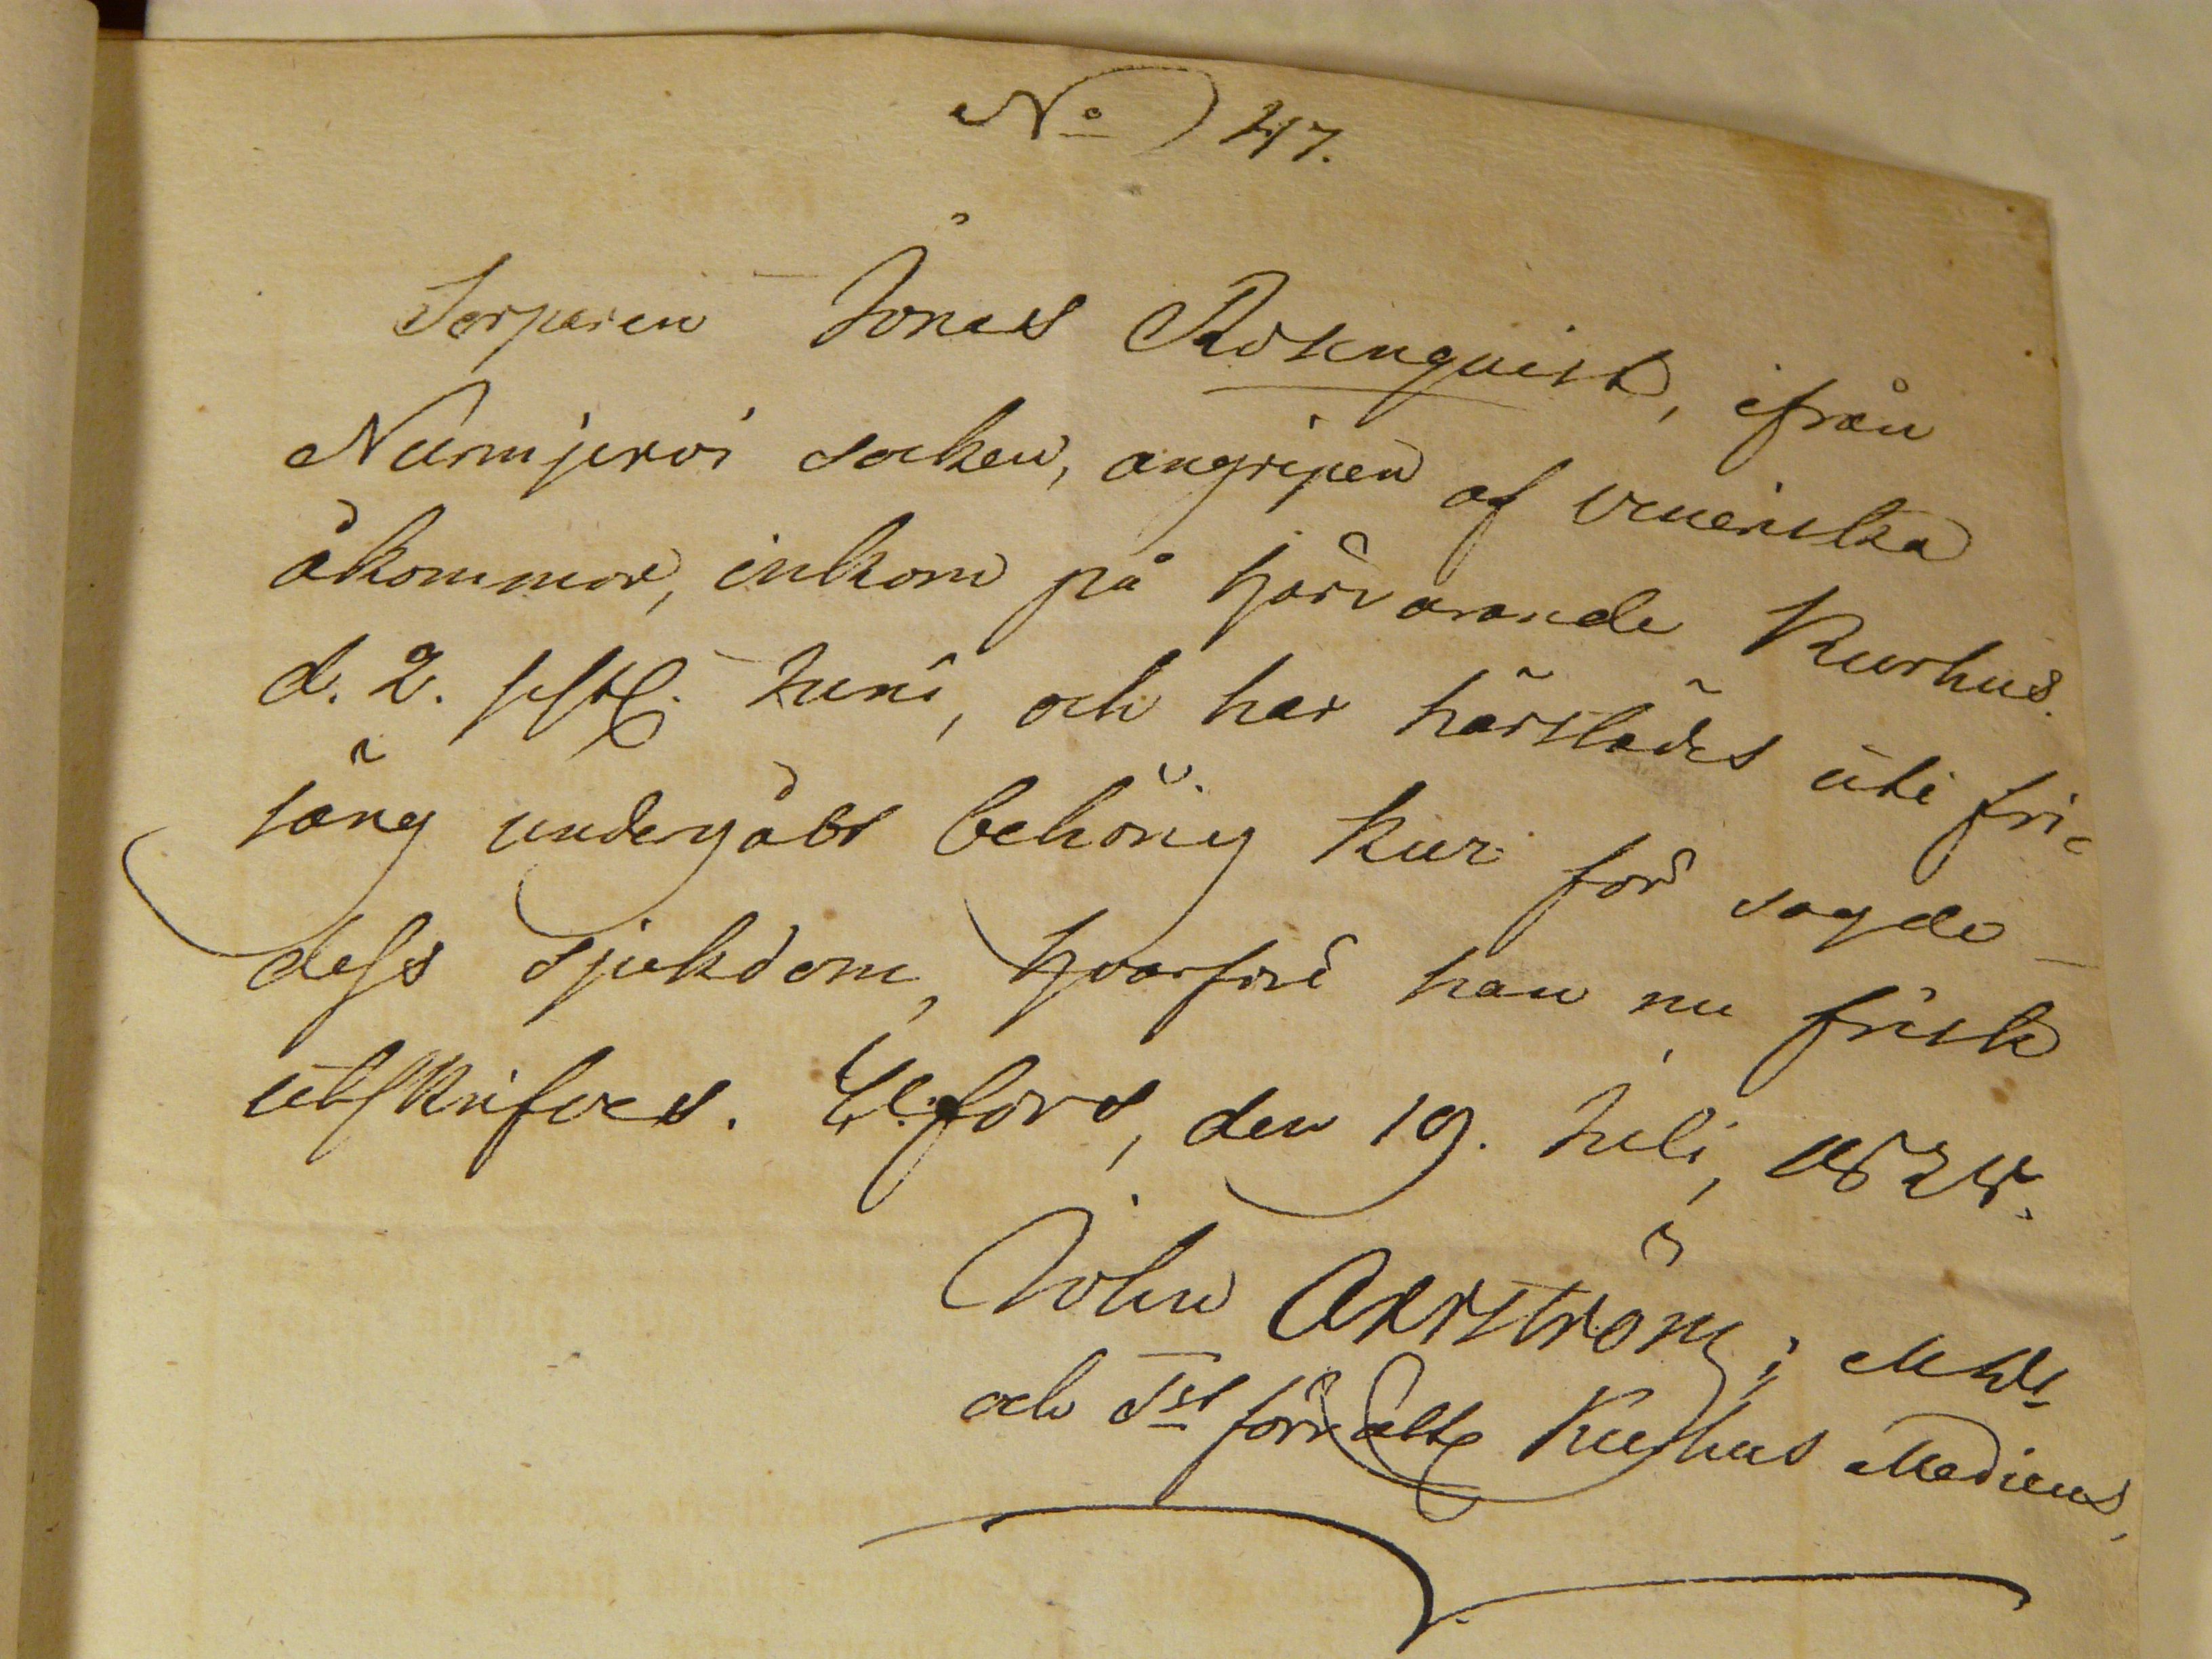 No 47.
Torparen Jonas Rosenquist, ifrån
Nurmijervi socken, angripen af veneriska
åkommor, inkom på härvarande Kurhus
d. 2. sistl. Juni, och har härstädes uti fri-
säng undergått behörig kur för sagde
dess sjukdom, hvarföre han nu frisk
utskrifves. H:fors, den 19. Juli, 1824.
John Agrström; MD
och Tst förvalt Kurhus Medicus.